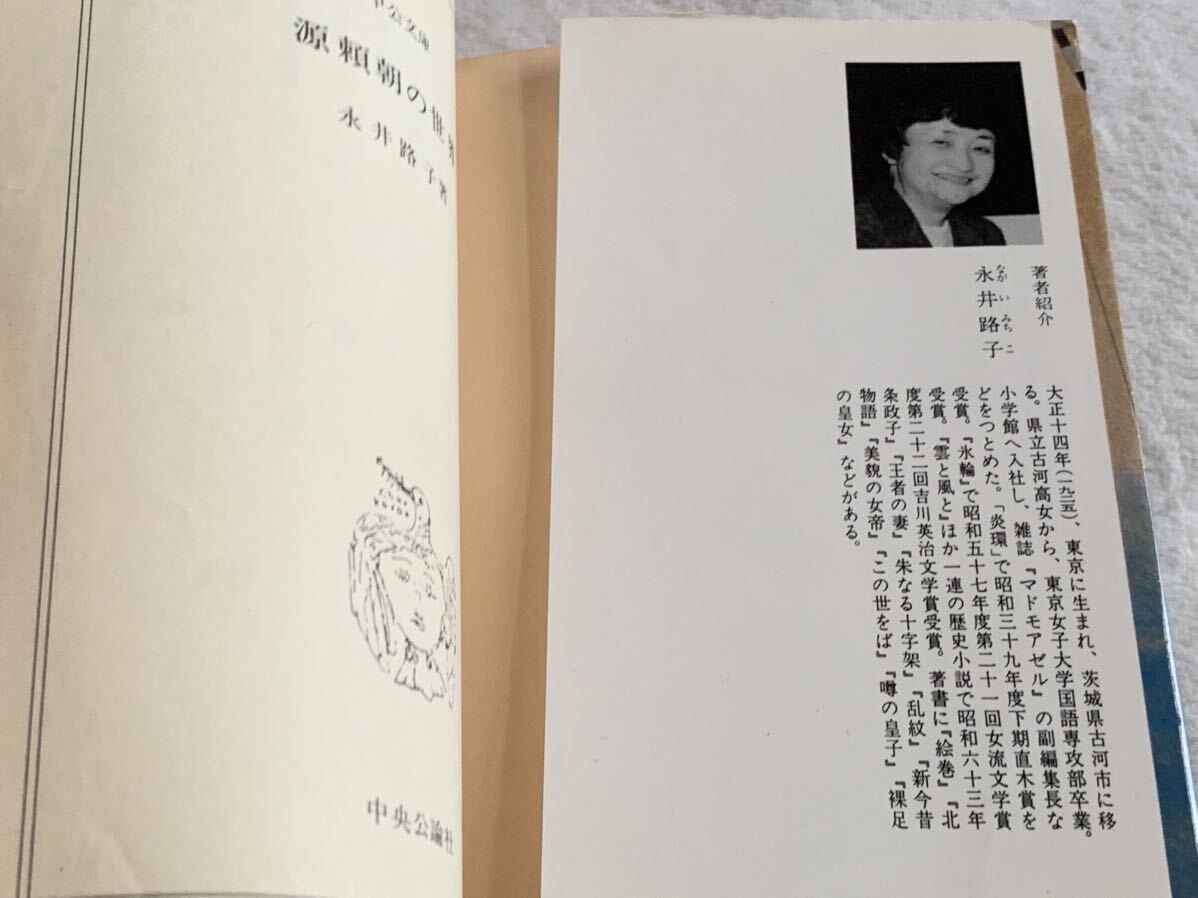 中公文庫
源頼朝の世界
永井路子著
中央公論社
著者紹介
永井路子
なが い みち こ
大正十四年(一九二五)、東京に生まれ、茨城県古河市に移
る。県立古河高女から、東京女子大学国語専攻部卒業。
小学館へ入社し、雑誌『マドモアゼル』の副編集長な
どをつとめた。「炎環」で昭和三十九年度下期直木賞を
受賞。『氷輪』で昭和五十七年度第二十一回女流文学賞
受賞。『雲と風と』ほか一連の歴史小説で昭和六十三年
度第二十二回吉川英治文学賞受賞。著書に『絵巻』『北
条政子』『王者の妻』『朱なる十字架』『乱紋』『新今昔
物語』『美貌の女帝』『この世をば』『噂の皇子』『裸足
の皇女』などがある。